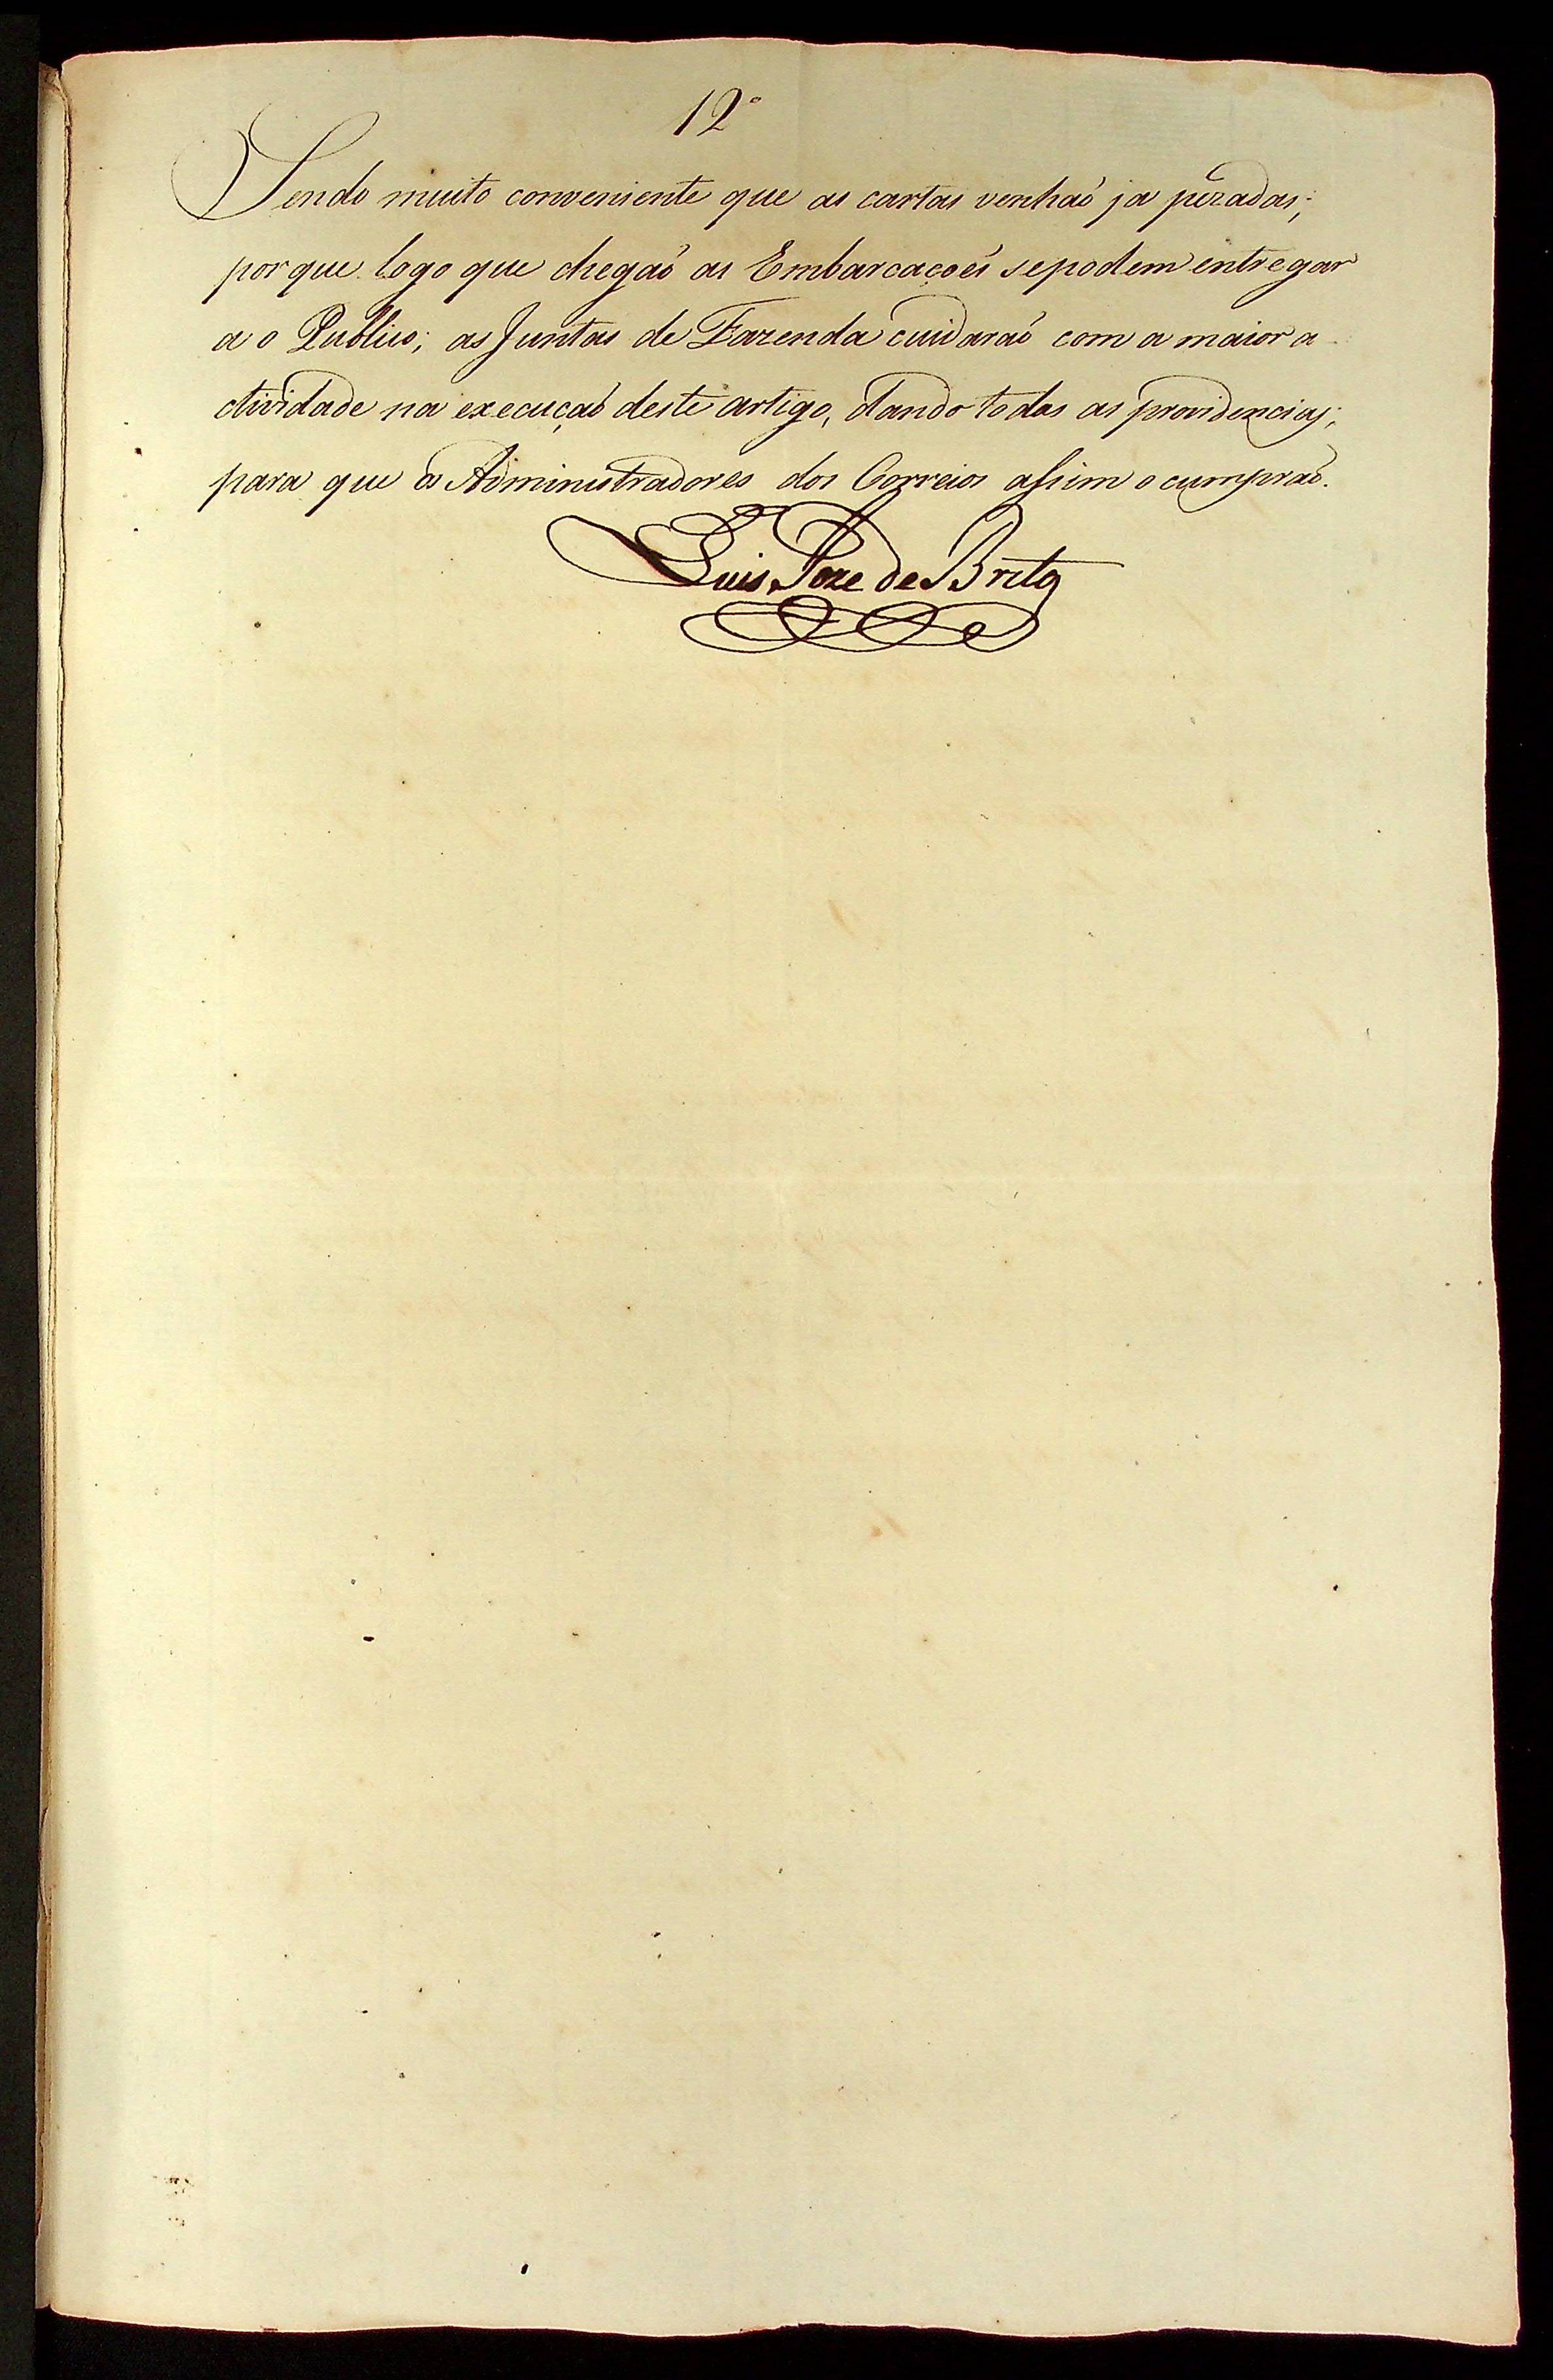 12º
Sendo muito conveniente que as cartas venhaõ ja pezadas;
porque logo que chegaõ as Embarcaçoẽs se podem entregar
ao Publico; as Juntas de Fazenda cuidaraõ com a maior a-
ctividade na execuçaõ deste artigo, dando todas as providencias;
para que os Administradores dos Correios assim o cumpraõ.
Luis Joze de Brito